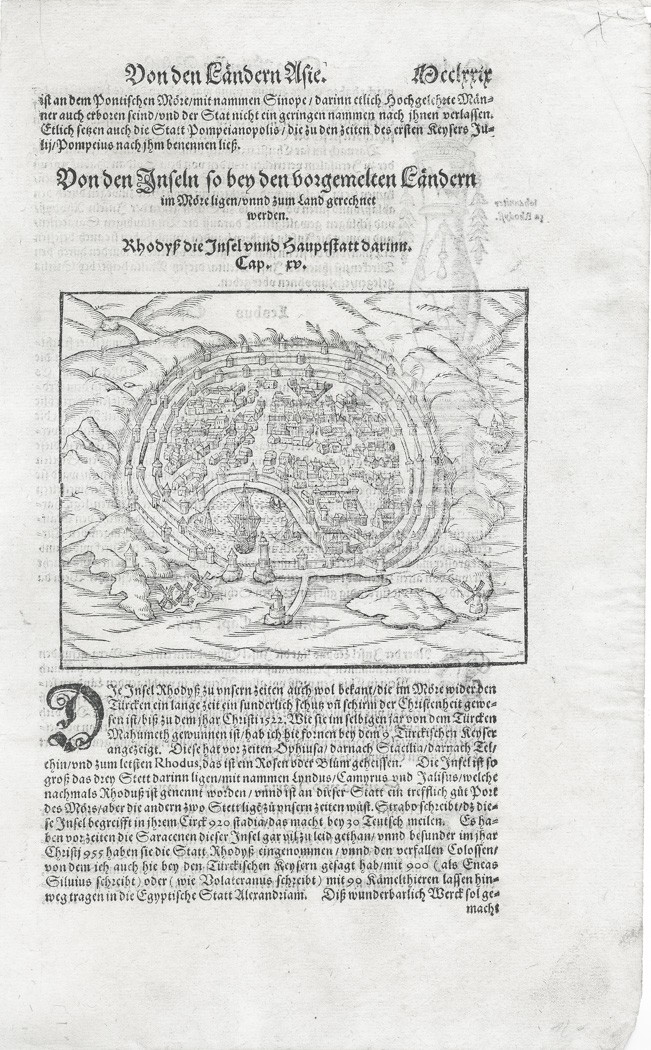 Von den Ländern Asie. Mcclxxix
ist an dem Pontischen Möre/mit nammen Sinope/darinn etlich Hochgelehrte Män⸗
ner auch erboren seind/vnd der Stat nicht ein geringen nammen nach jhnen verlassen.
Etlich setzen auch die Statt Pompeianopolis/die zu den zeiten des ersten Keysers Ju⸗
lij/Pompeius nach jhm benennen ließ.
Von den Inseln so bey den vorgemelten Ländern
im Möre ligen/vnnd zum Land gerechnet
werden.
Rhodyß die Insel vnnd Hauptstatt darinn.
Cap. xv.
DJe Insel Rhodyß zu vnsern zeiten auch wol bekant/die im Möre wider den
Türcken ein lange zeit ein sunderlich schutz vñ schirm der Christenheit gewe⸗
sen ist/biß zu dem jhar Christi 1522. Wie sie im selbigen jar von dem Türcken
Mahumeth gewunnen ist/hab ich hie fornen bey dem 9. Türckischen Keyser
angezeigt. Diese hat vor zeiten Ophiusa/darnach Staetilia/darnach Tel⸗
chin/vnd zum letsten Rhodus, das ist ein Rosen oder Blům geheissen. Die Insel ist so
groß das drey Stett darinn ligen/mit nammen Lyndus/Camyrus vnd Jalisus/welche
nachmals Rhoduß ist genennt worden/vnnd ist an dieser Statt ein trefflich gůt Port
des Mörs/aber die andern zwo Stett ligē zů vnsern zeiten wüst. Strabo schreibt/dz die⸗
se Insel begreifft in jhrem Circk 920 stadia/das macht bey 30 Teutsch meilen. Es ha⸗
ben vor zeiten die Saracenen dieser Insel gar vil zu leid gethan/vnnd besunder im jhar
Christi 955 haben sie die Statt Rhodyß eingenommen/vnnd den verfallen Colossen/
von dem ich auch hie bey den Türckischen Keysern gesagt hab/mit 900 (als Eneas
Siluius schreibt) oder (wie Volateranus schreibt) mit 90 Kämelthieren lassen hin⸗
weg tragen in die Egyptische Statt Alexandriam. Diß wunderbarlich Werck sol ge⸗
macht